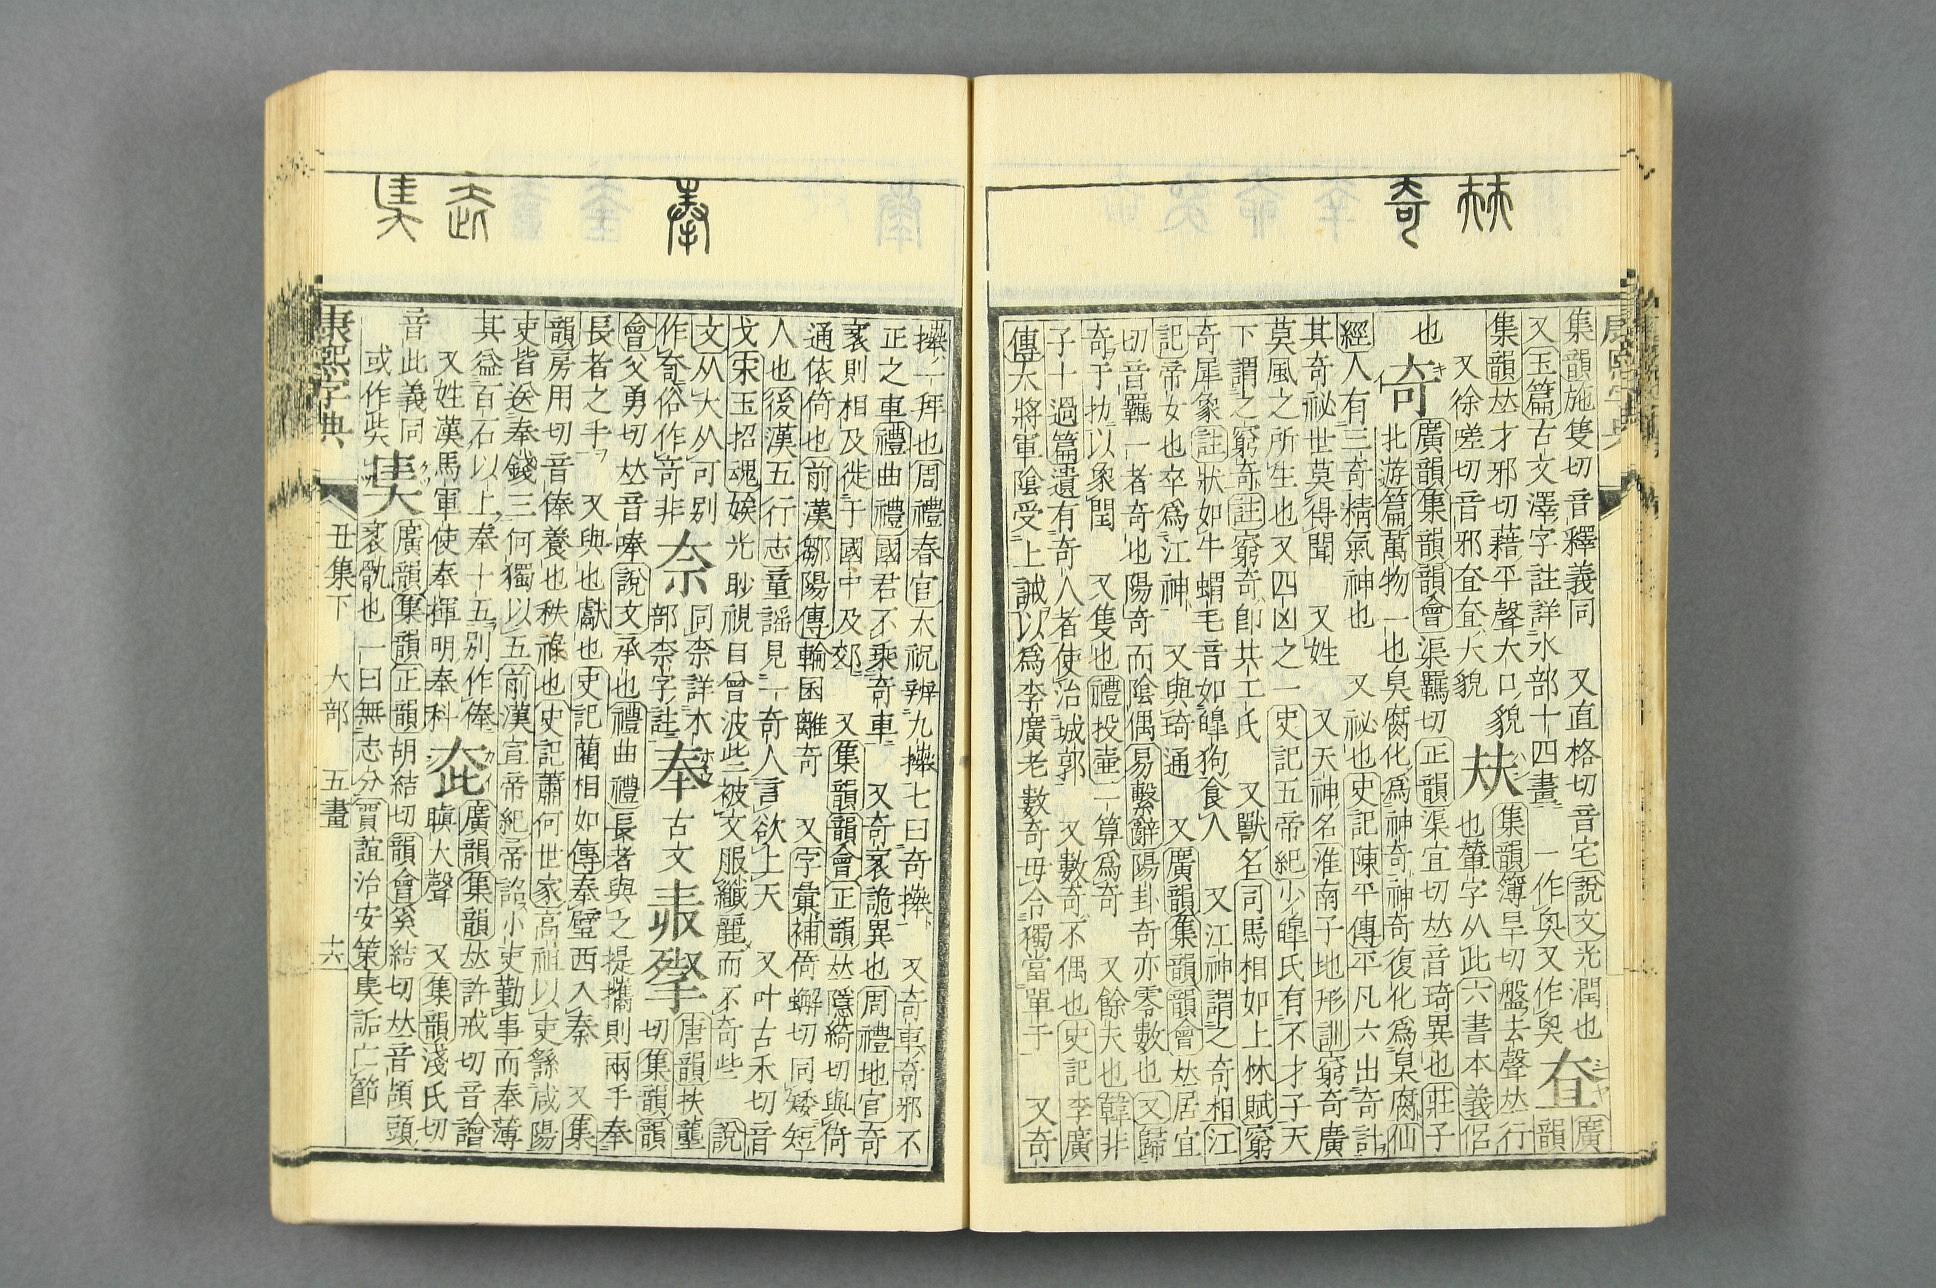 㚘
奇
康熙字典
集韻施隻切音釋義同　又直格切音宅說文光潤也
又玉篇古文澤字註詳水部十四畫　一作㚖又作臭
㚗
廣
韻
集韻𠀤才邪切藉平聲大口貌
又徐嗟切音邪㚗㚗大貌
㚘
集韻簿旱切盤去聲𠀤行
也輦字从此六書本義侶
也
奇
廣韻集韻韻會渠羈切正韻渠宜切𠀤音琦異也莊子
北遊篇萬物一也臭腐化爲神奇神奇復化爲臭腐仙
經人有三奇精氣神也　又祕也史記陳平傳平凡六出奇計
其奇祕世莫得聞　又姓　又天神名淮南子地形訓窮奇廣
莫風之所生也又四凶之一史記五帝紀少皥氏有不才子天
下謂之窮奇註窮奇卽共工氏　又獸名司馬相如上林賦窮
奇犀象註狀如牛蝟毛音如嘷狗食人　又江神謂之奇相江
記帝女也卒爲江神　又與琦通　又廣韻集韻韻會𠀤居宜
切音羈一者奇也陽奇而陰偶易繫辭陽卦奇亦零數也又歸
奇于扐以象閏　又隻也禮投壷一算爲奇　又餘夫也韓非
子十過篇遺有奇人者使治城郭　又數奇不偶也史記李廣
傳大將軍陰受上誡以爲李廣老數奇毋令獨當單于　又奇
奉
㚔
㚖
𢷎一拜也周禮春官大祝辨九𢷎七曰奇𢷎　又奇車奇邪不
正之車禮曲禮國君不乘奇車　又奇衺詭異也周禮地官奇
衺則相及徙于國中及郊　又集韻韻會正韻𠀤隱綺切與倚
通依倚也前漢鄒陽傳輪囷離奇　又字彙補倚蠏切同矮短
人也後漢五行志童謠見一奇人言欲上天　又叶古禾切音
戈宋玉招魂娭光眇視目曾波些被文服纖麗而不奇些　說
文从大从可別
作竒俗作竒非
奈
同柰詳木
部柰字註
奉
古文𡴀𢍱
唐韻扶壟
切集韻韻
會父勇切𠀤音唪說文承也禮曲禮長者與之提攜則兩手奉
長者之手　又與也獻也史記藺相如傳奉璧西入秦　又集
韻房用切音俸養也秩祿也史記蕭何世家高祖以吏繇咸陽
吏皆送奉錢三何獨以五前漢宣帝紀帝詔小吏勤事而奉薄
其益百石以上奉十五別作俸
又姓漢馬軍使奉揮明奉科
㚛
廣韻集韻𠀤許戒切音譮
瞋大聲　又集韻淺氏切
音此義同
或作㚜
㚖
廣韻集韻正韻胡結切韻會奚結切𠀤音頡頭
衺骩也一曰無志分賈誼治安策㚖詬亡節
康熙字典
丑集下　大部　五畫　六